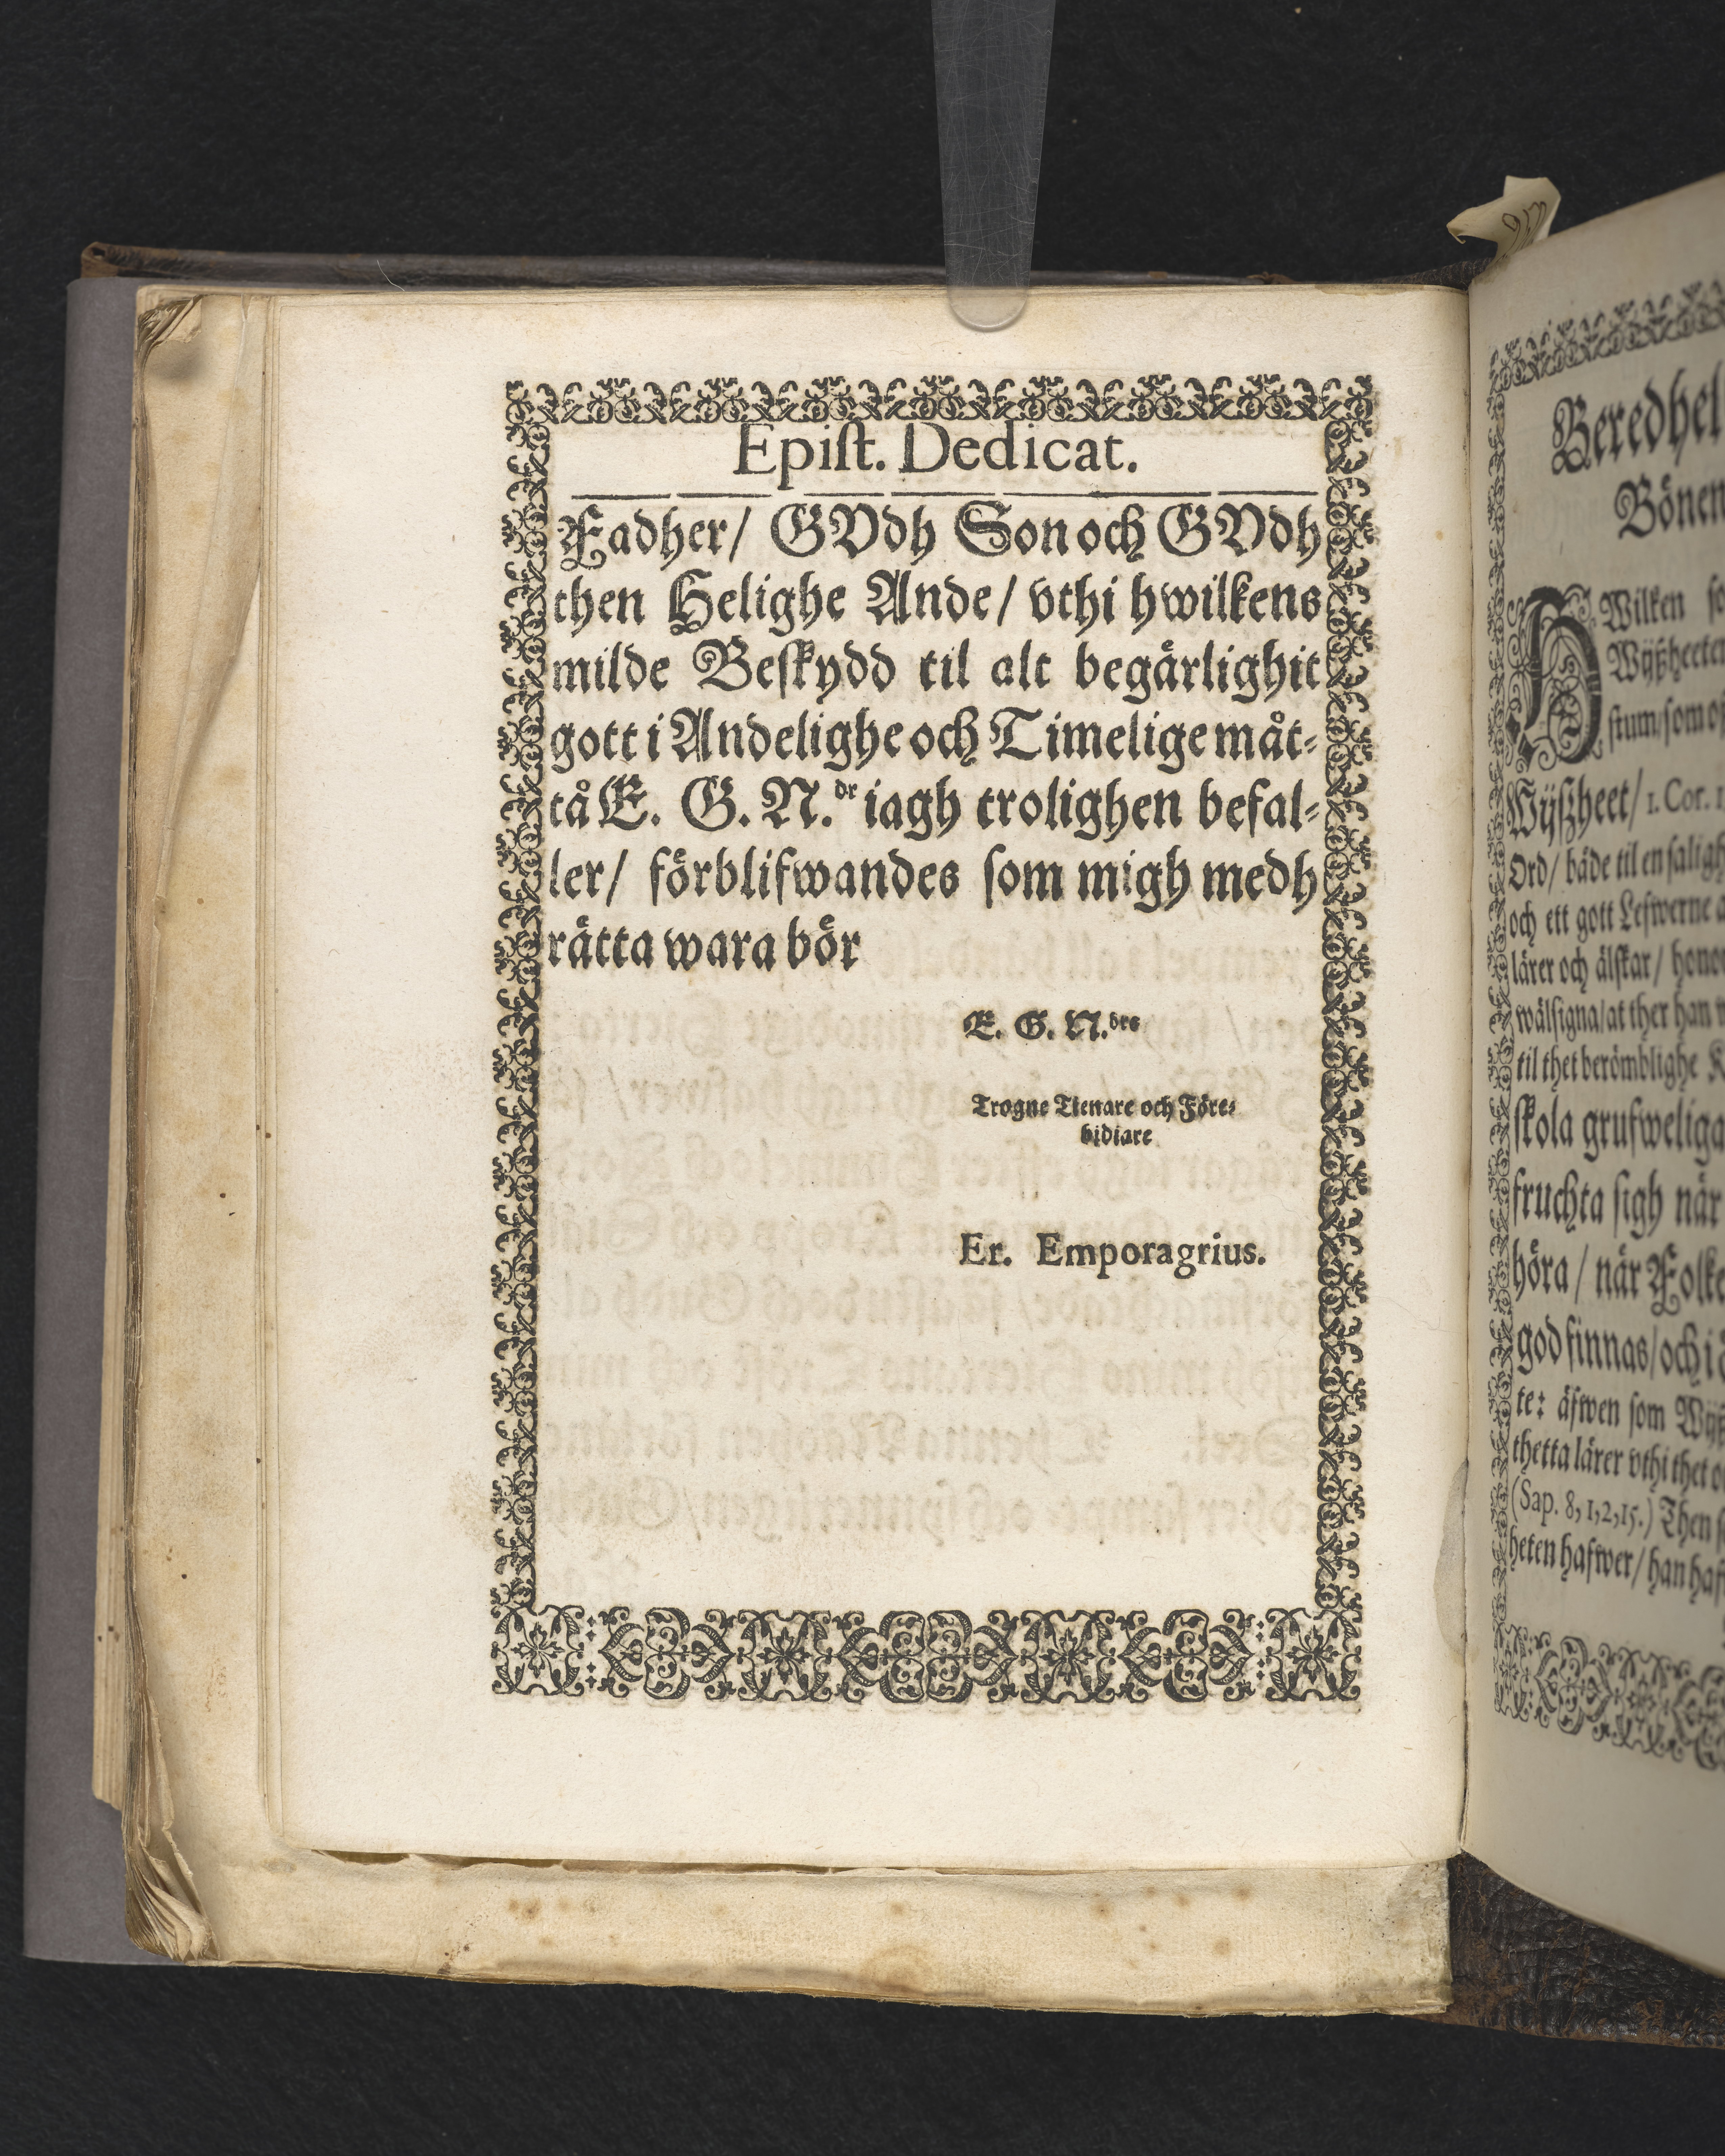 Epiſt. Dedicat.
Fadher/ GVdh Son och GVdh
then Helighe Ande/ vthi hwilkens
milde Beſkydd til alt begärlighit
gott i Andelighe och Timelige måt-
tå E. G. N.dr iagh trolighen befal-
ler/ förblifwandes ſom migh medh
rätta wara bör
E. G. N.drs
Trogne Tienare och Före-
bidiare
Er. Emporagrius.
Beredhel
Bönen
HWilken
Wijßheeten
ſtum/ ſom
Wijßheet/ 1. Cor. 1
Ord/ både til en ſaligh
och ett gott Lefwerne
lärer och älſkar/
wälſigna/ at ther han
til thet berömblighe
ſkola grufweliga
fruchta ſigh när
höra/ när Folke
god finnas/ och i
te: äfwen ſom
thetta lärer vthi thet
(Sap. 8, 1,2,15.) Then
heten hafwer/ han